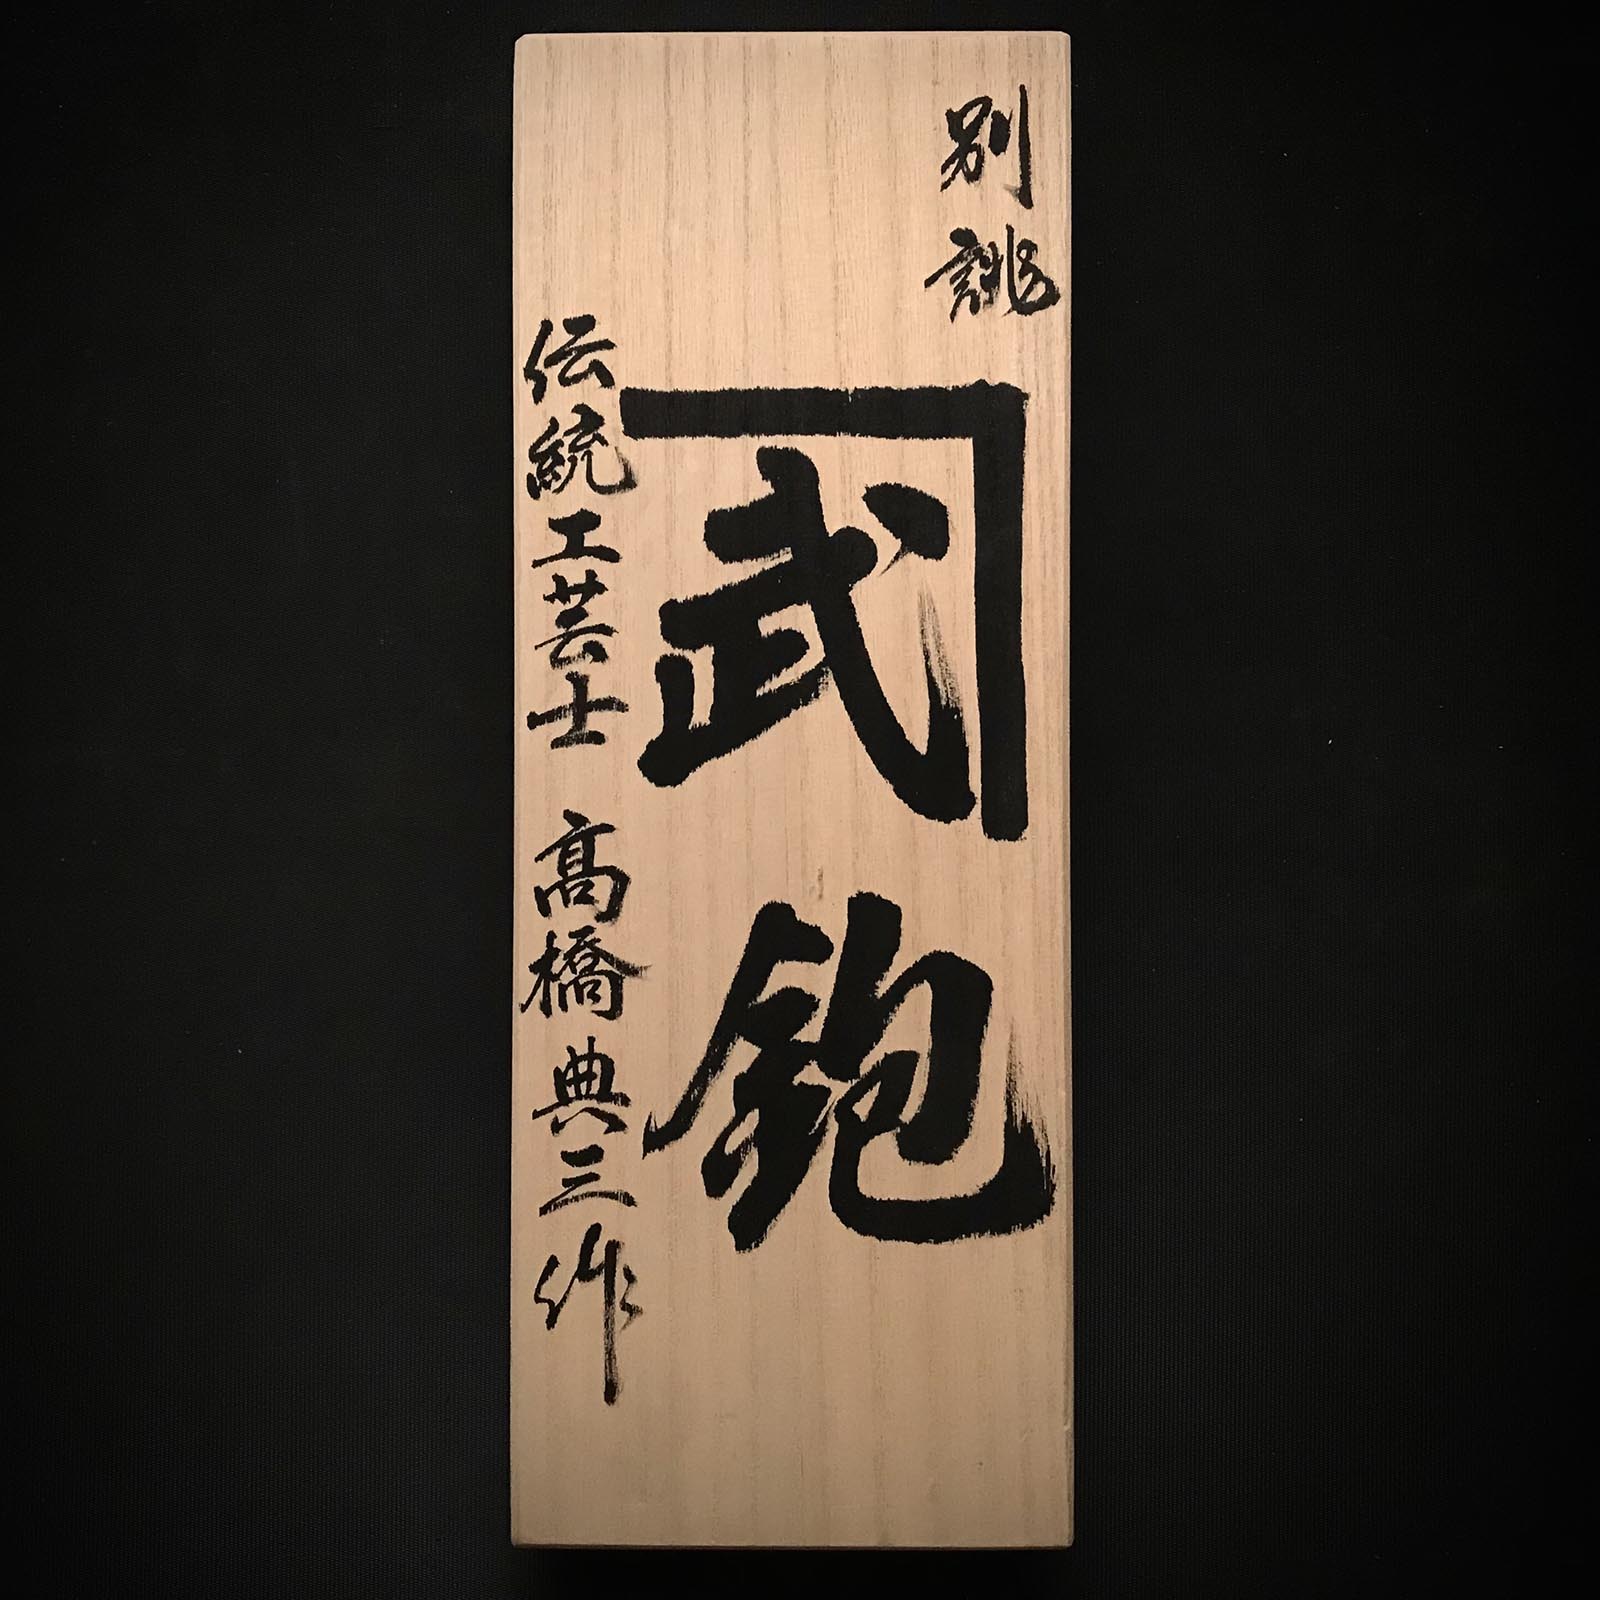 別誂
武鉋
伝統工芸士 髙橋典三作